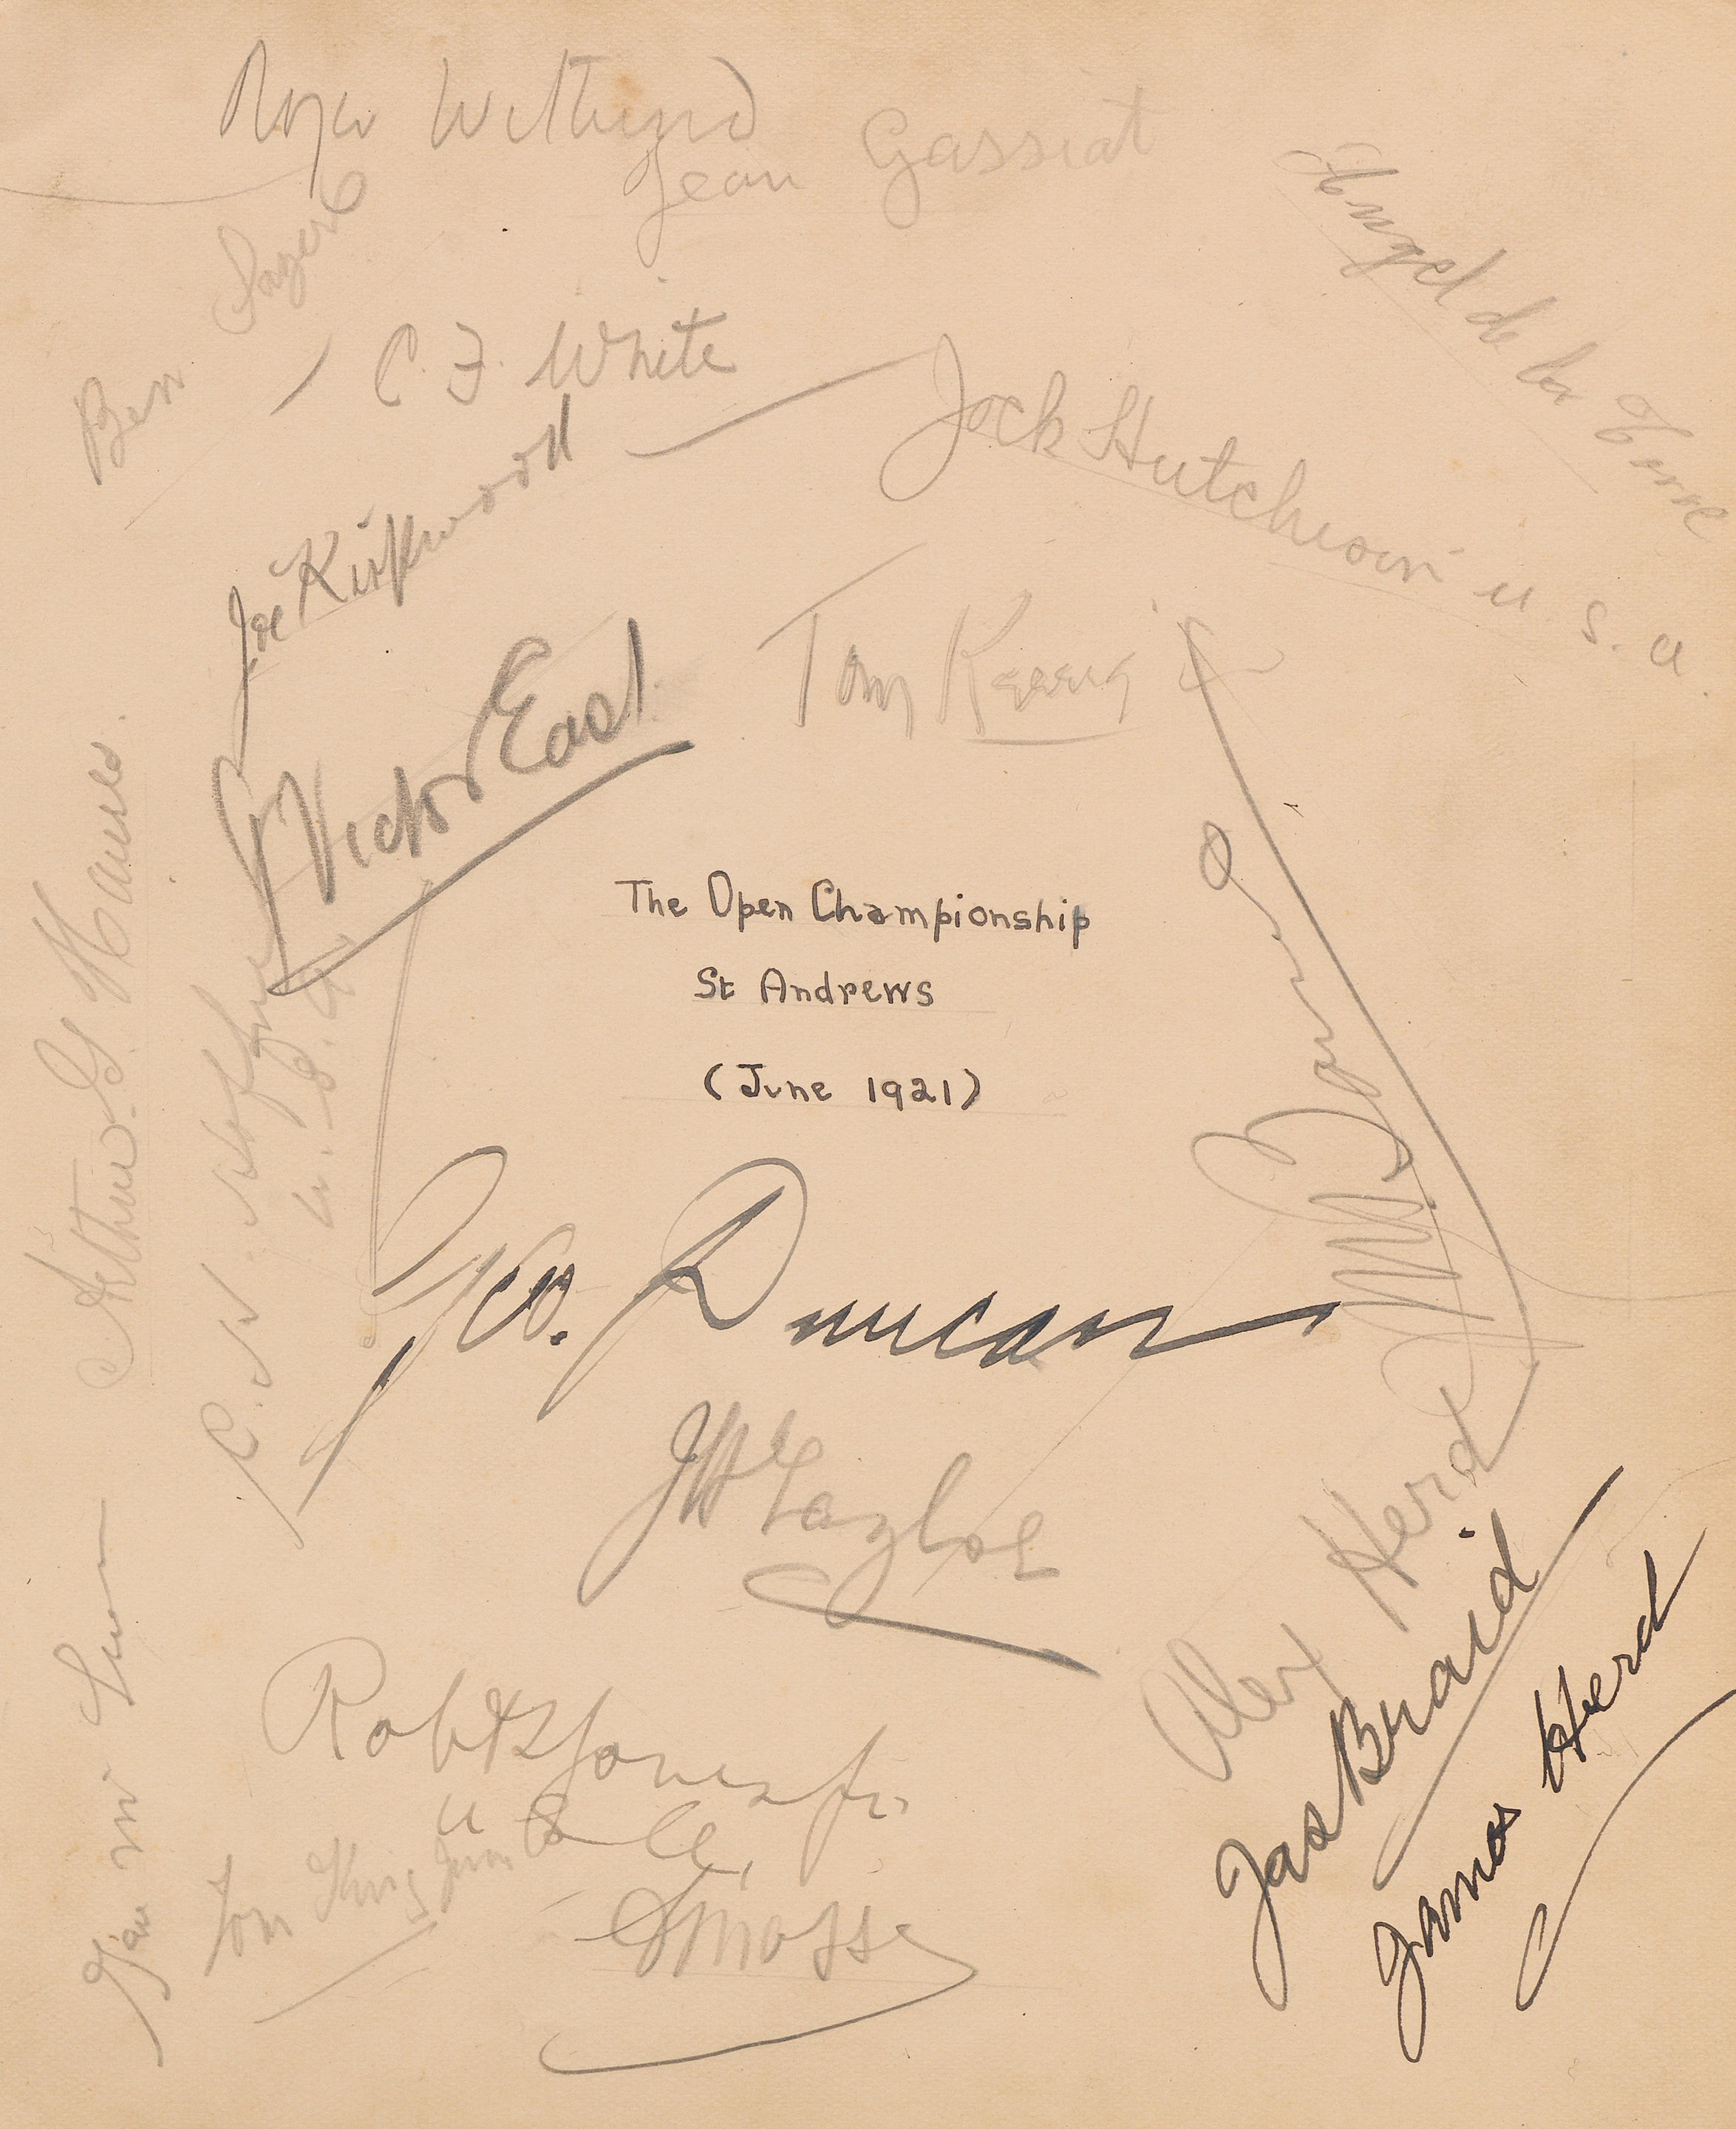 Roger Wethered
Jean Gassiat
Angel de la Torre
Ben Sayers
C. F. White
Jock Hutchison U. S. A.
Joe Kirkwood
Tom Kerrigan
Victor East
The Open Championship
St Andrews
(June 1921)
Arthur G. Havers.
C. W. Hoffner
U. S. A.
Geo. Duncan
J H Taylor
Alex Herd
Jas Braid
James Herd
Robt T Jones Jr.
U S A,
Tom King Junr
A Massy